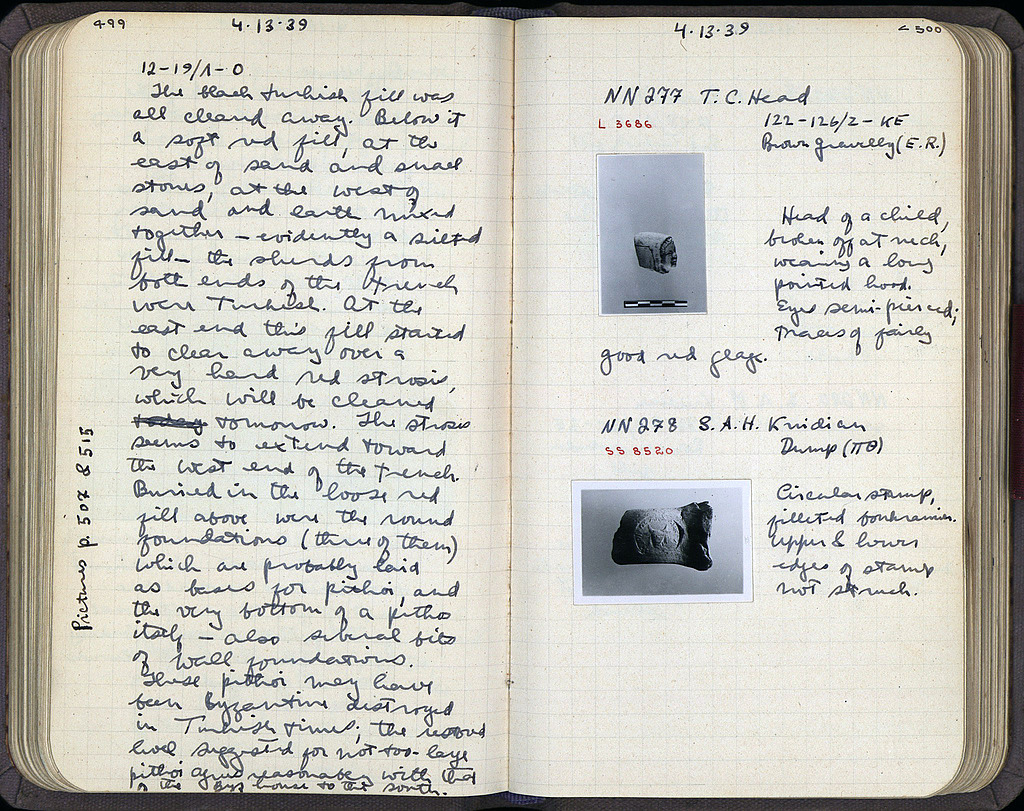 499
4·13·39
12-19/Λ-O
The black Turkish fill was
all cleared away. Below it
a soft red fill, at the
east of sand and small
stones, at the west of
sand and earth mixed
together — evidently a silted
fill — the sherds from
both ends of the trench
were Turkish. At the
east end this fill started
to clear away over a
very hard red strosis,
which will be cleaned
today tomorrow. The strosis
seems to extend toward
the west end of the trench.
Buried in the loose red
fill above were the round
foundations (three of them)
which are probably laid
as bases for pithoi, and
the very bottom of a pithos
itself — also several bits
of wall foundations.
These pithoi may have
been Byzantine destroyed
in Turkish times; the
level suggested for not too large
pithoi agrees reasonably with that
of the Byz house to the south.
Pictures p. 507 & 515
4·13·39
500
NN 277 T.C. Head
L 3686
122-126/2-KE
Brown gravelly (E.R.)
Head of a child,
broken off at neck,
wearing a long
pointed hood.
Eyes semi-pierced;
traces of fairly
good red glaze.
NN 278 S.A.H. Knidian
SS 8520
Dump (ΠΘ)
Circular stamp,
filleted boukranion.
Upper & lower
edges of stamp
not struck.